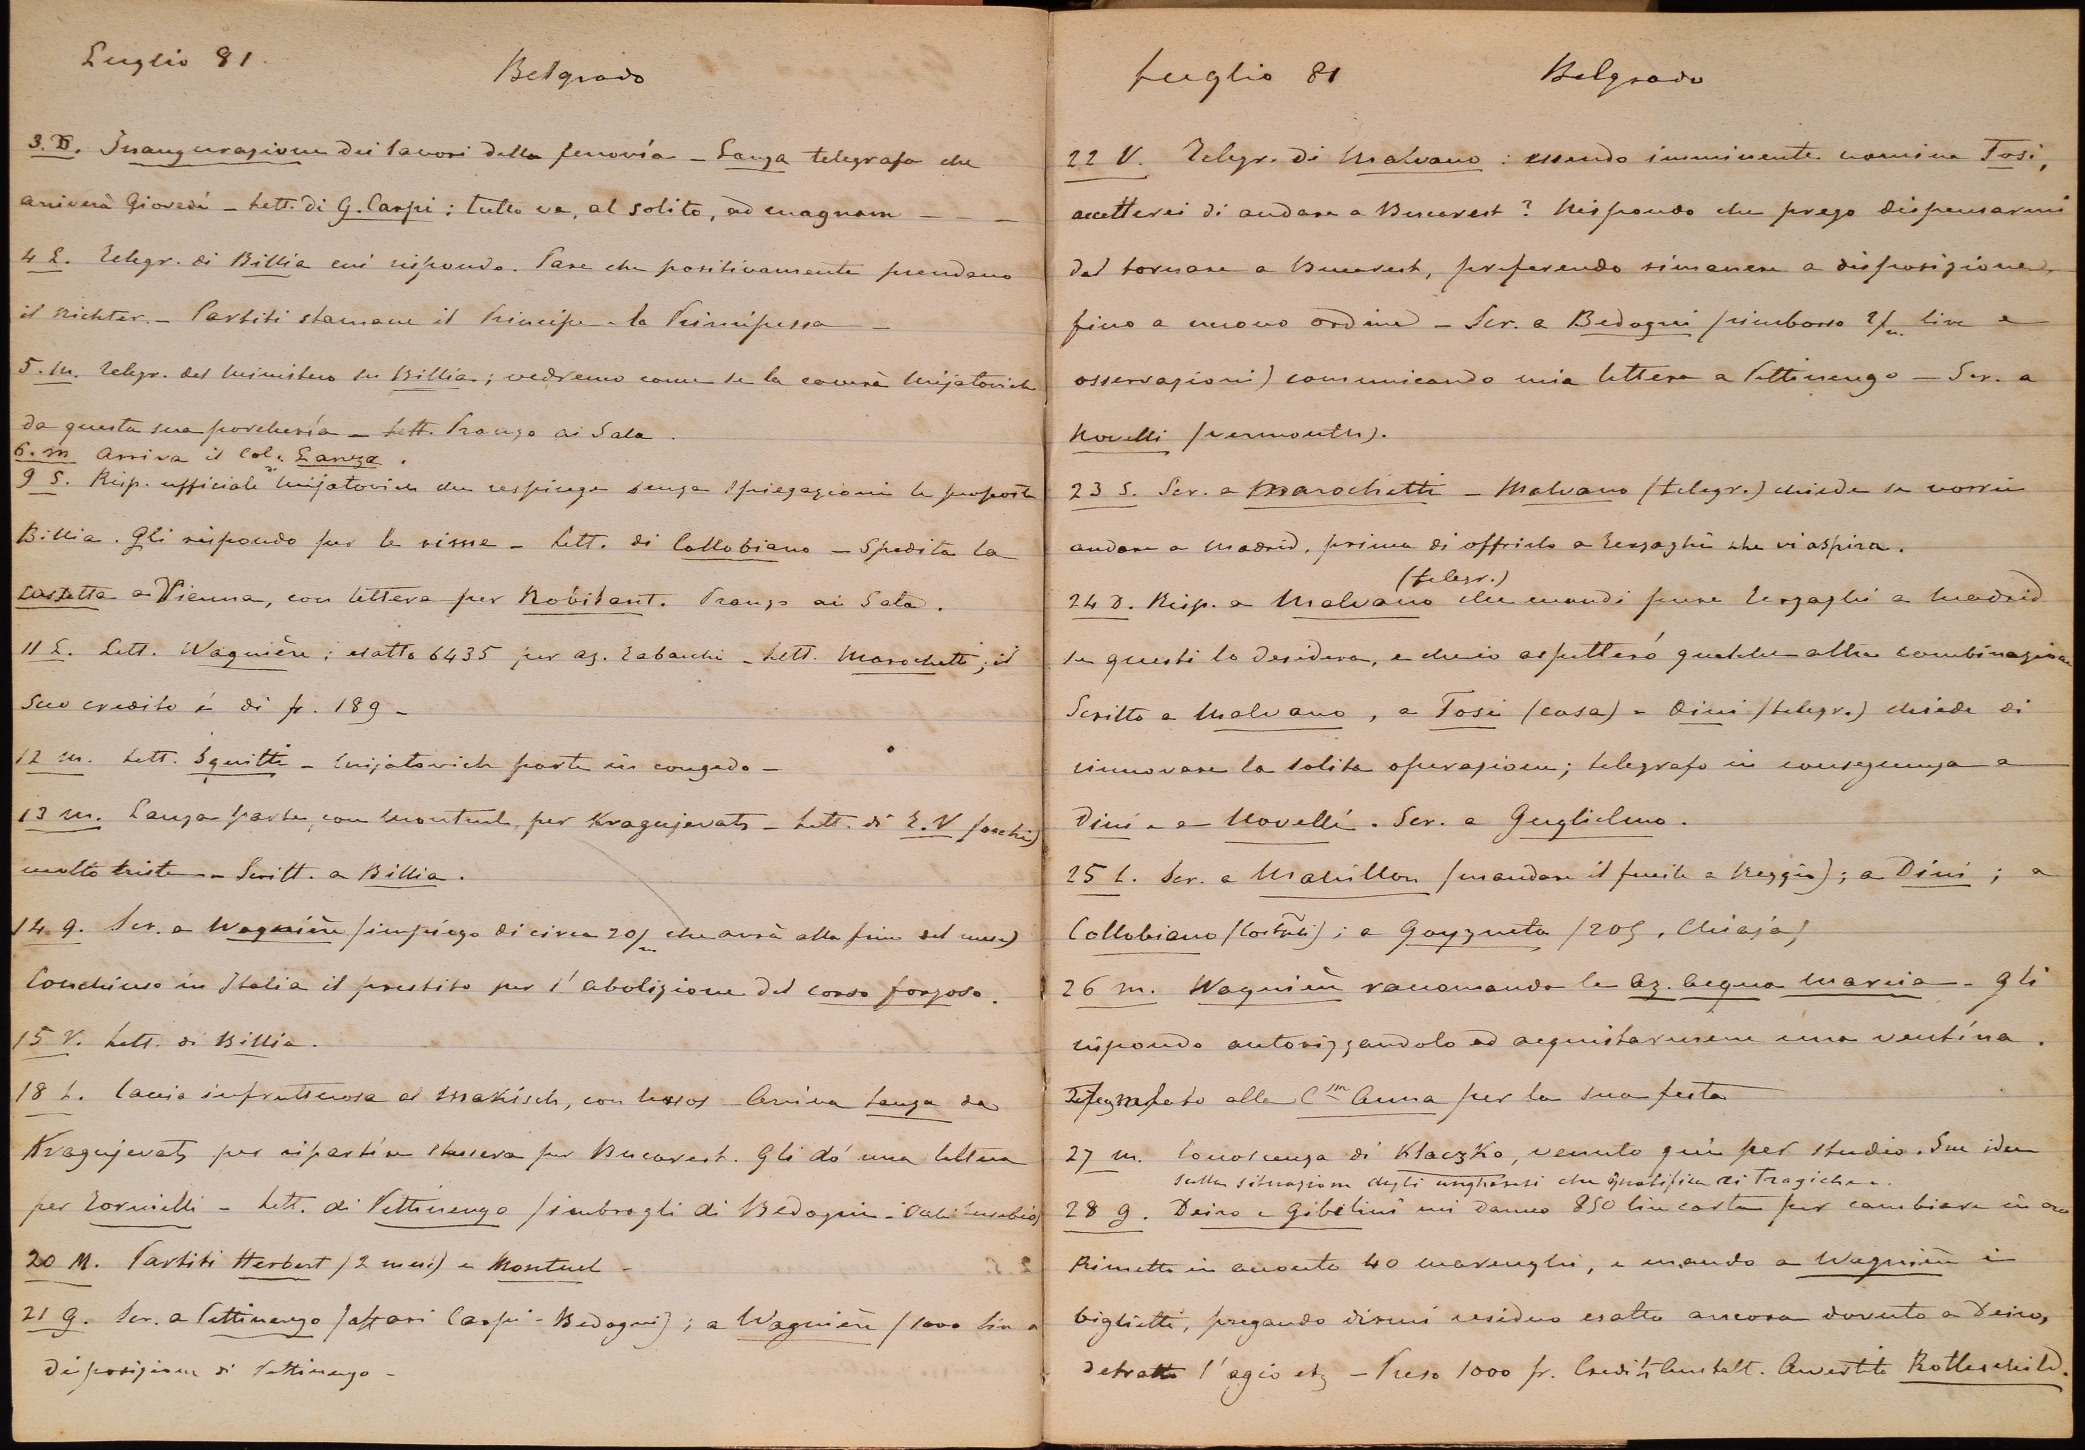 Luglio 81.
Belgrado
3. D. Inaugurazione dei lavori della ferrovia – Lanza telegrafa che
arriverà Giovedì – Lett. di G. Carpi: tutto va, al solito, ad magnam – – –
4 L. Telegr. di Billia cui rispondo. Pare che positivamente prendano
il Richter. – Partiti stamane il Principe e la Principessa –
5. M. Telegr. del Ministero su Billia; vedremo come se la caverà Mijatovich
da questa sua porcheria – Lett. Pranzo ai Sala.
6. m Arriva il Col. Lanza.
9 S. Risp. ufficiale di Mijatovich che respinge senza spiegazioni le proposte
Billia. Gli rispondo per le rime – Lett. di Collobiano – Spedita la
cassetta a Vienna, con lettera per Robilant. Pranzo ai Sala.
11 L. Lett. Wagnière; esatto 6435 per az. Tabacchi – Lett. Marochetti; il
suo credito è di fr. 189 –
12 M. Lett. Squitti – Mijatovich parte in congedo –
13 m. Lanza parte, con Montuel, per Kragujevatz – Lett. di E. V
molto triste – Scritt. a Billia.
14 g. Scr. a Wagnière (impiego di circa 20/m che avrà alla fine del mese)
Conchiuso in Italia il prestito per l'abolizione del corso forzoso.
15 V. Lett. di Billia.
18 L. Caccia infruttuosa al Makisch, con Arriva Lanza da
Kragujevatz per ripartire stassera per Bucarest. Gli dò una lettera
per Tornielli – Lett. di Pettinengo (imbrogli di Bedogni –
20 M. Partiti Herbert (2 mesi) e Montuel –
21 g. Scr. a Pettinengo (affari Carpi - Bedogni); a Wagnière (1000 lire a
disposizione di Pettinengo –
Luglio 81
Belgrado
22 V. Telegr. di Malvano: essendo imminente nomina Tosi,
accetterei di andare a Bucarest? Rispondo che prego dispensarmi
dal tornare a Bucarest, preferendo rimanere a disposizione,
fino a nuovo ordine – Scr. a Bedogni (rimborso 2/m lire e
osservazioni) comunicando mia lettera a Pettinengo – Scr. a
Novelli (vermouth).
23 S. Scr. a Marochetti – Malvano (telegr.) chiede se vorrei
andare a Madrid, prima di offrirlo a Terzaghi che vi aspira.
(telegr.)
24 D. Risp. a Malvano che mandi pure Terzaghi a Madrid
se questi lo desidera, e ch'io aspetterò qualche altra combinazione
Scritto a Malvano, a Tosi (casa) – Dini (telegr.) chiede di
rinnovare la solita operazione; telegrafo in conseguenza a
Dini e a Novelli. Scr. a Guglielmo.
25 L. Scr. a Mahillon (mandare il fucile a Reggio); a Dini; a
Collobiano; a Goyzueta (205, Chiaja)
26 M. Wagnière raccomanda le az. acqua marcia – gli
rispondo autorizzandolo ad acquistarmene una ventina.
Telegrafato alla C.ssa Anna per la sua festa
27 m. Conoscenza di Klaczko, venuto qui per studio. Sue idee
sulla situazione degli ungheresi che qualifica di tragiche.
28 g. Deiro e Gibelini mi danno 850 lire carta per cambiare in oro
Rimetto in acconto 40 marenghi, e mando a Wagnière i
biglietti, pregando dirmi residuo esatto ancora dovuto a Deiro,
detratto l'agio etz – Preso 1000 fr. Creditanstalt. Avvertito Rothschild.